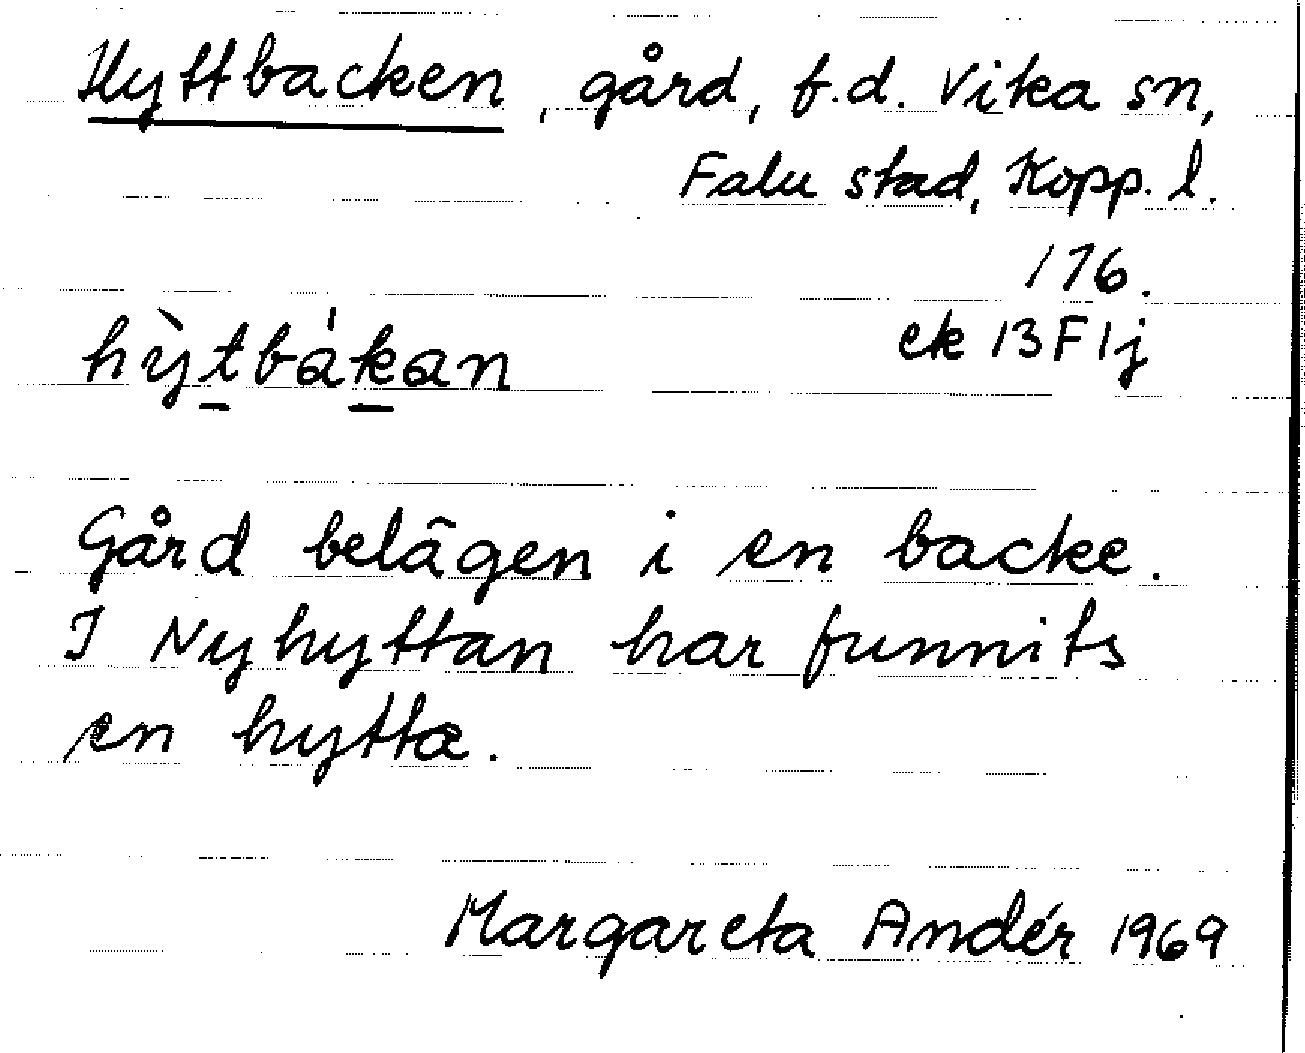 Hyttbacken, gård, f.d. Vika sn,
Falu stad, Kopp. l.
176.
ek 13F1j
hỳt̲bák̲an
Gård belägen i en backe.
I Nyhyttan har funnits
en hytta.
Margareta Andér 1969